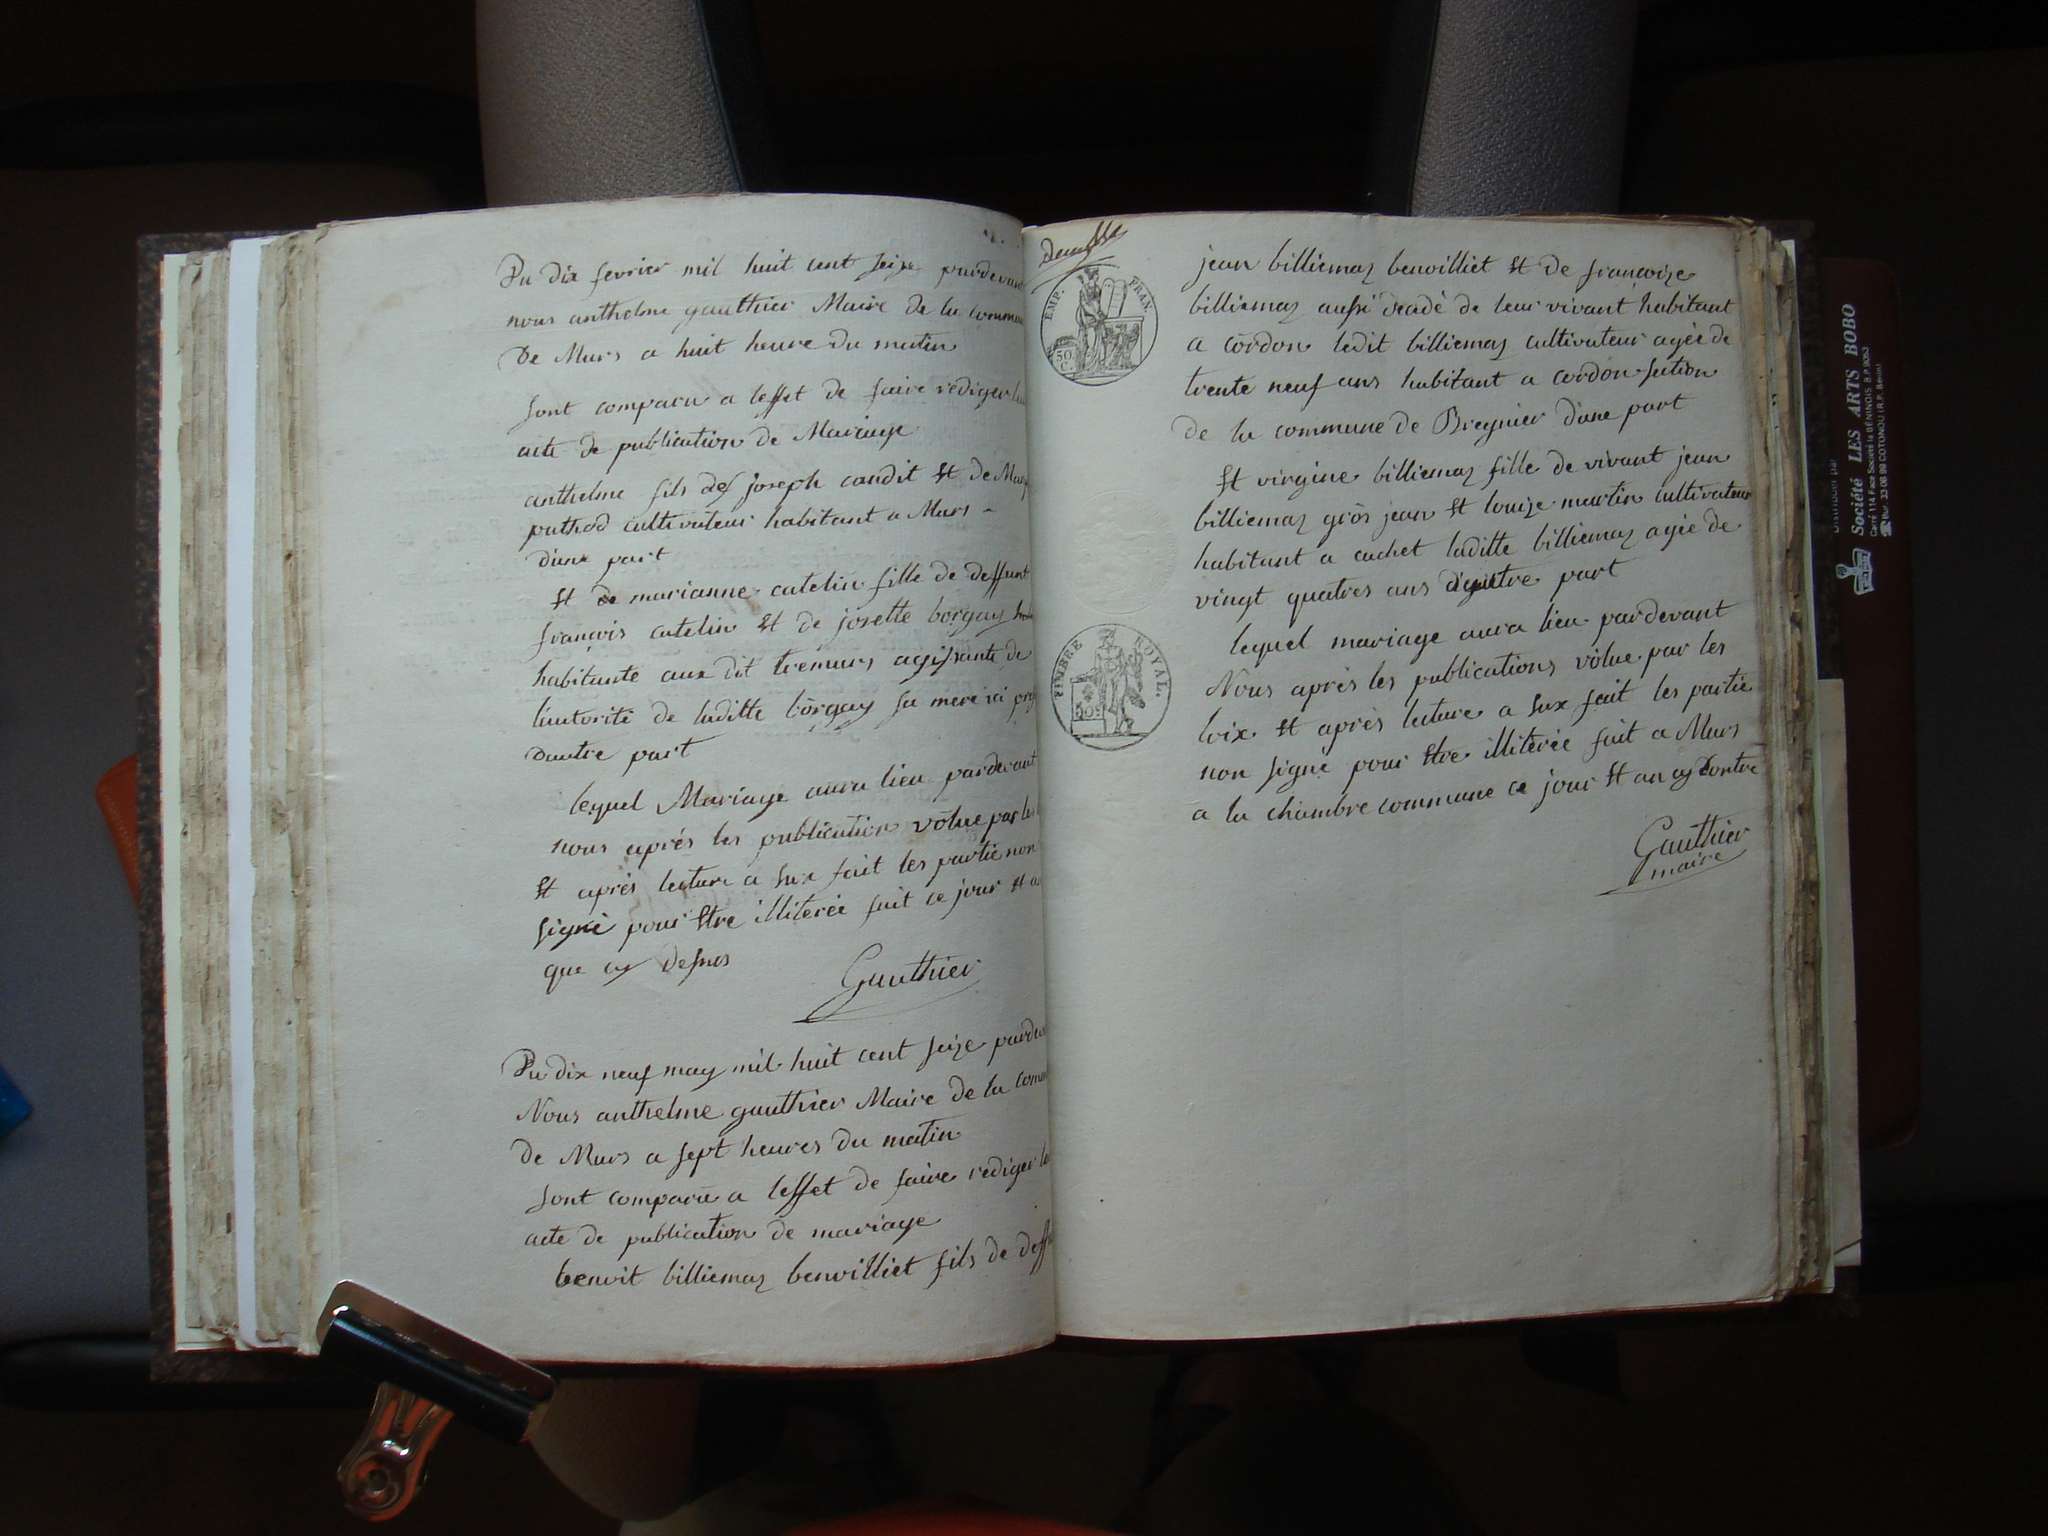 Du dix fevrier mil huit cent seize pardevant
nous anthelme gauthier Maire de la commu
De Murs a huit heure du matin
sont comparu a leffet de faire rediger
acte de publication de Mariage
anthelme fils de joseph candit Et de
puthod cultivateur habitant a Murs
d'une part
Et de marianne catelin fille de deffunt
françois catelin Et de josette borgay
habitante aux dit tremurs agissante de
lautorité de laditte borgay sa mere ici
dautre part
lequel Mariage aura lieu pardevant
nous aprés les publication volue par les
Et aprés lecture a Eux fait les partie non
signé pour Etre illiterée fait ce jour Et
que cy dessus
Gauthier
Du dix neuf may mil huit cent seize pardev
Nous anthelme gauthier Maire de la comm
de Murs a sept heures du matin
sont comparu a leffet de faire rediger
acte de publication de mariage
benoit billiemaz benvilliet fils de deff
EMP. FRAN.
50 C.
TIMBRE ROYAL.
jean billiemaz benvilliet Et de françoize
billiemaz aussi dcadé de leur vivant habitant
a cordon ledit billiemaz cultivateur agée de
trente neuf ans habitant a cordon section
de la commune de Bregnier dune part
Et virgine billiemaz fille de vivant jean
billiemaz gros jean Et louize martin cultivateur
habitant a cuchet laditte billiemaz agée de
vingt quatres ans d'autre part
lequel mariage aura lieu pardevant
Nous aprés les publications volue par les
loix Et aprés lecture a Eux fait les partie
non signe pour Etre illiterée fait a Murs
a la chambre commune ce jour Et an cy
Gauthier
maire
Distribué par
Société LES ARTS BOBO
Carré 114 Face Société la BÉNINOIS B.P.
COTONOU (R.P. Bénin)